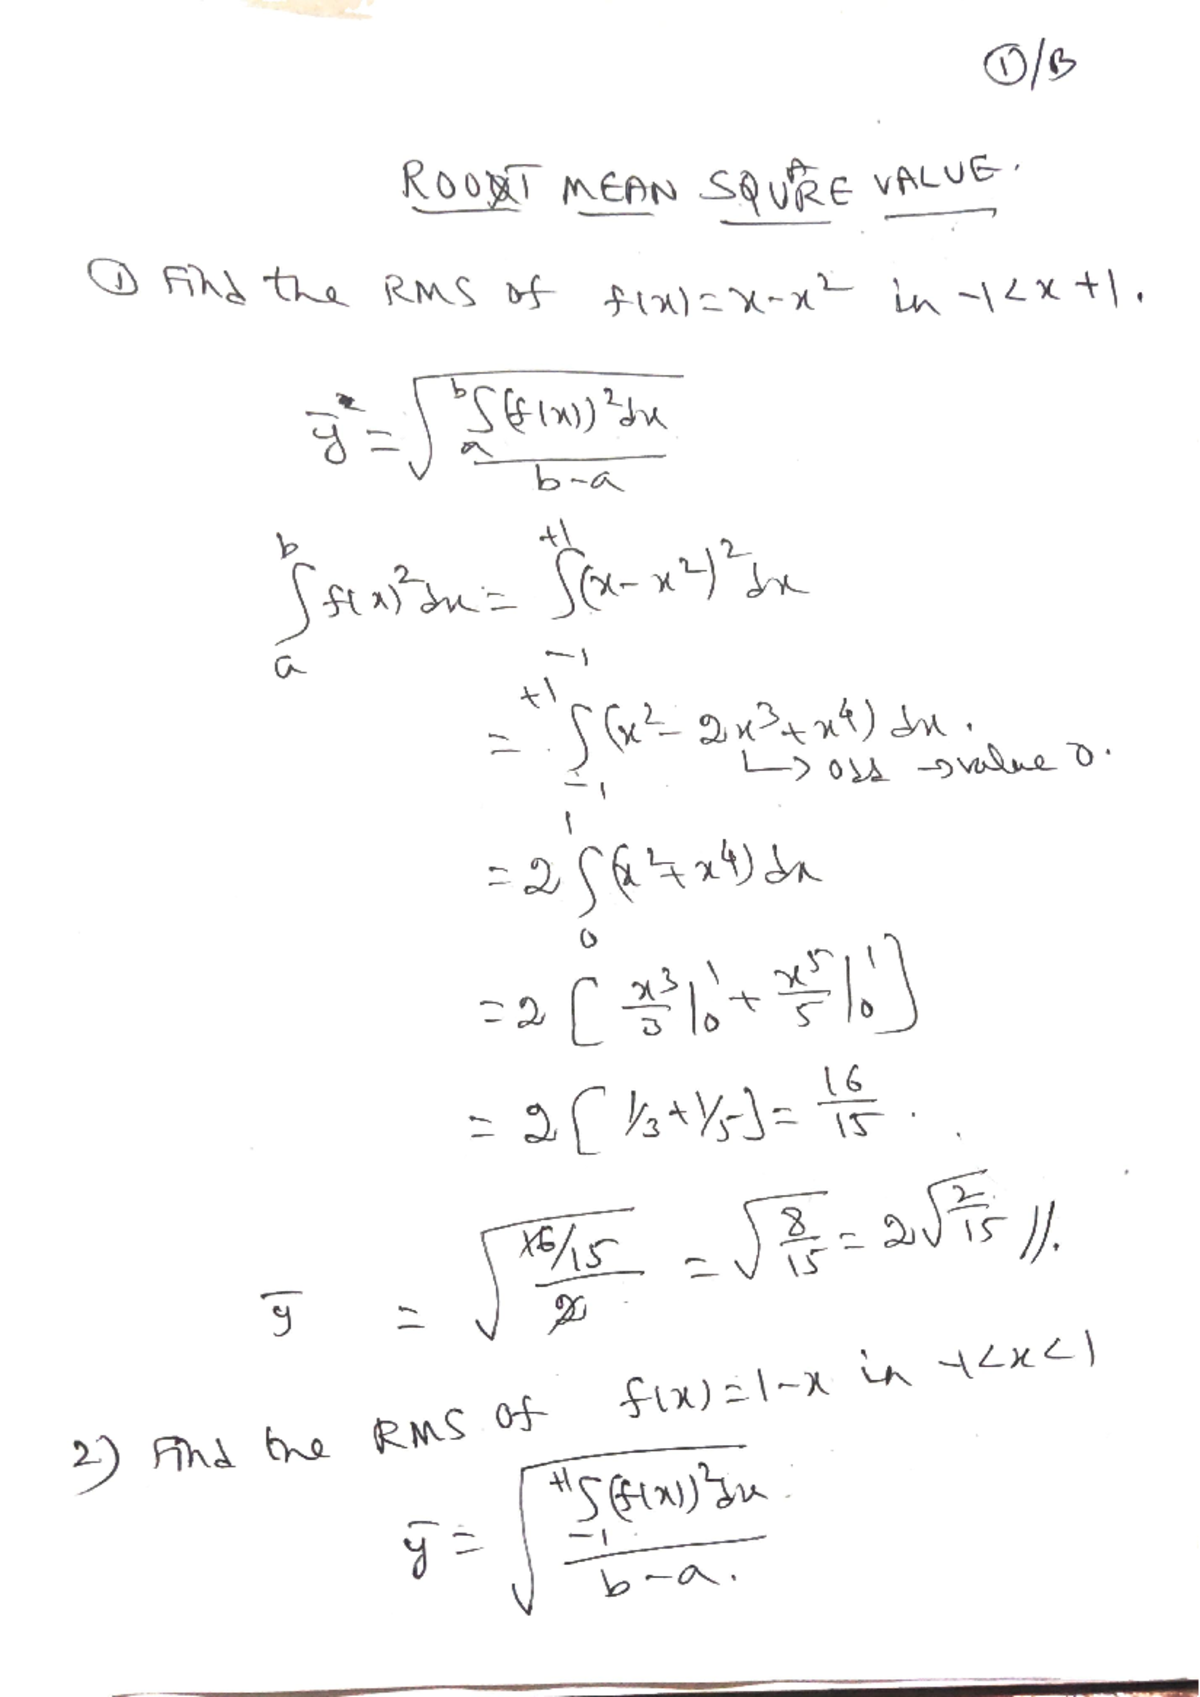 ①/B
ROOT MEAN SQUARE VALUE.
① Find the RMS of f(x)=x-x² in -1<x+1.
ȳ = √( ᵇ∫ₐ (f(x))² dx / b-a )
ᵇ∫ₐ f(x)² dx = ⁺¹∫₋₁ (x-x²)² dx
= ⁺¹∫₋₁ (x² - 2x³ + x⁴) dx.
↳ odd → value 0.
= 2 ¹∫₀ (x² + x⁴) dx
= 2 [ x³/3 |₀¹ + x⁵/5 |₀¹ ]
= 2 [ 1/3 + 1/5 ] = 16/15 .
ȳ = √( 16/15 / 2 ) = √(8/15) = 2√(2/15) //.
2) Find the RMS of f(x)=1-x in -1<x<1
ȳ = √( ⁺¹∫₋₁ (f(x))² dx / b-a. )